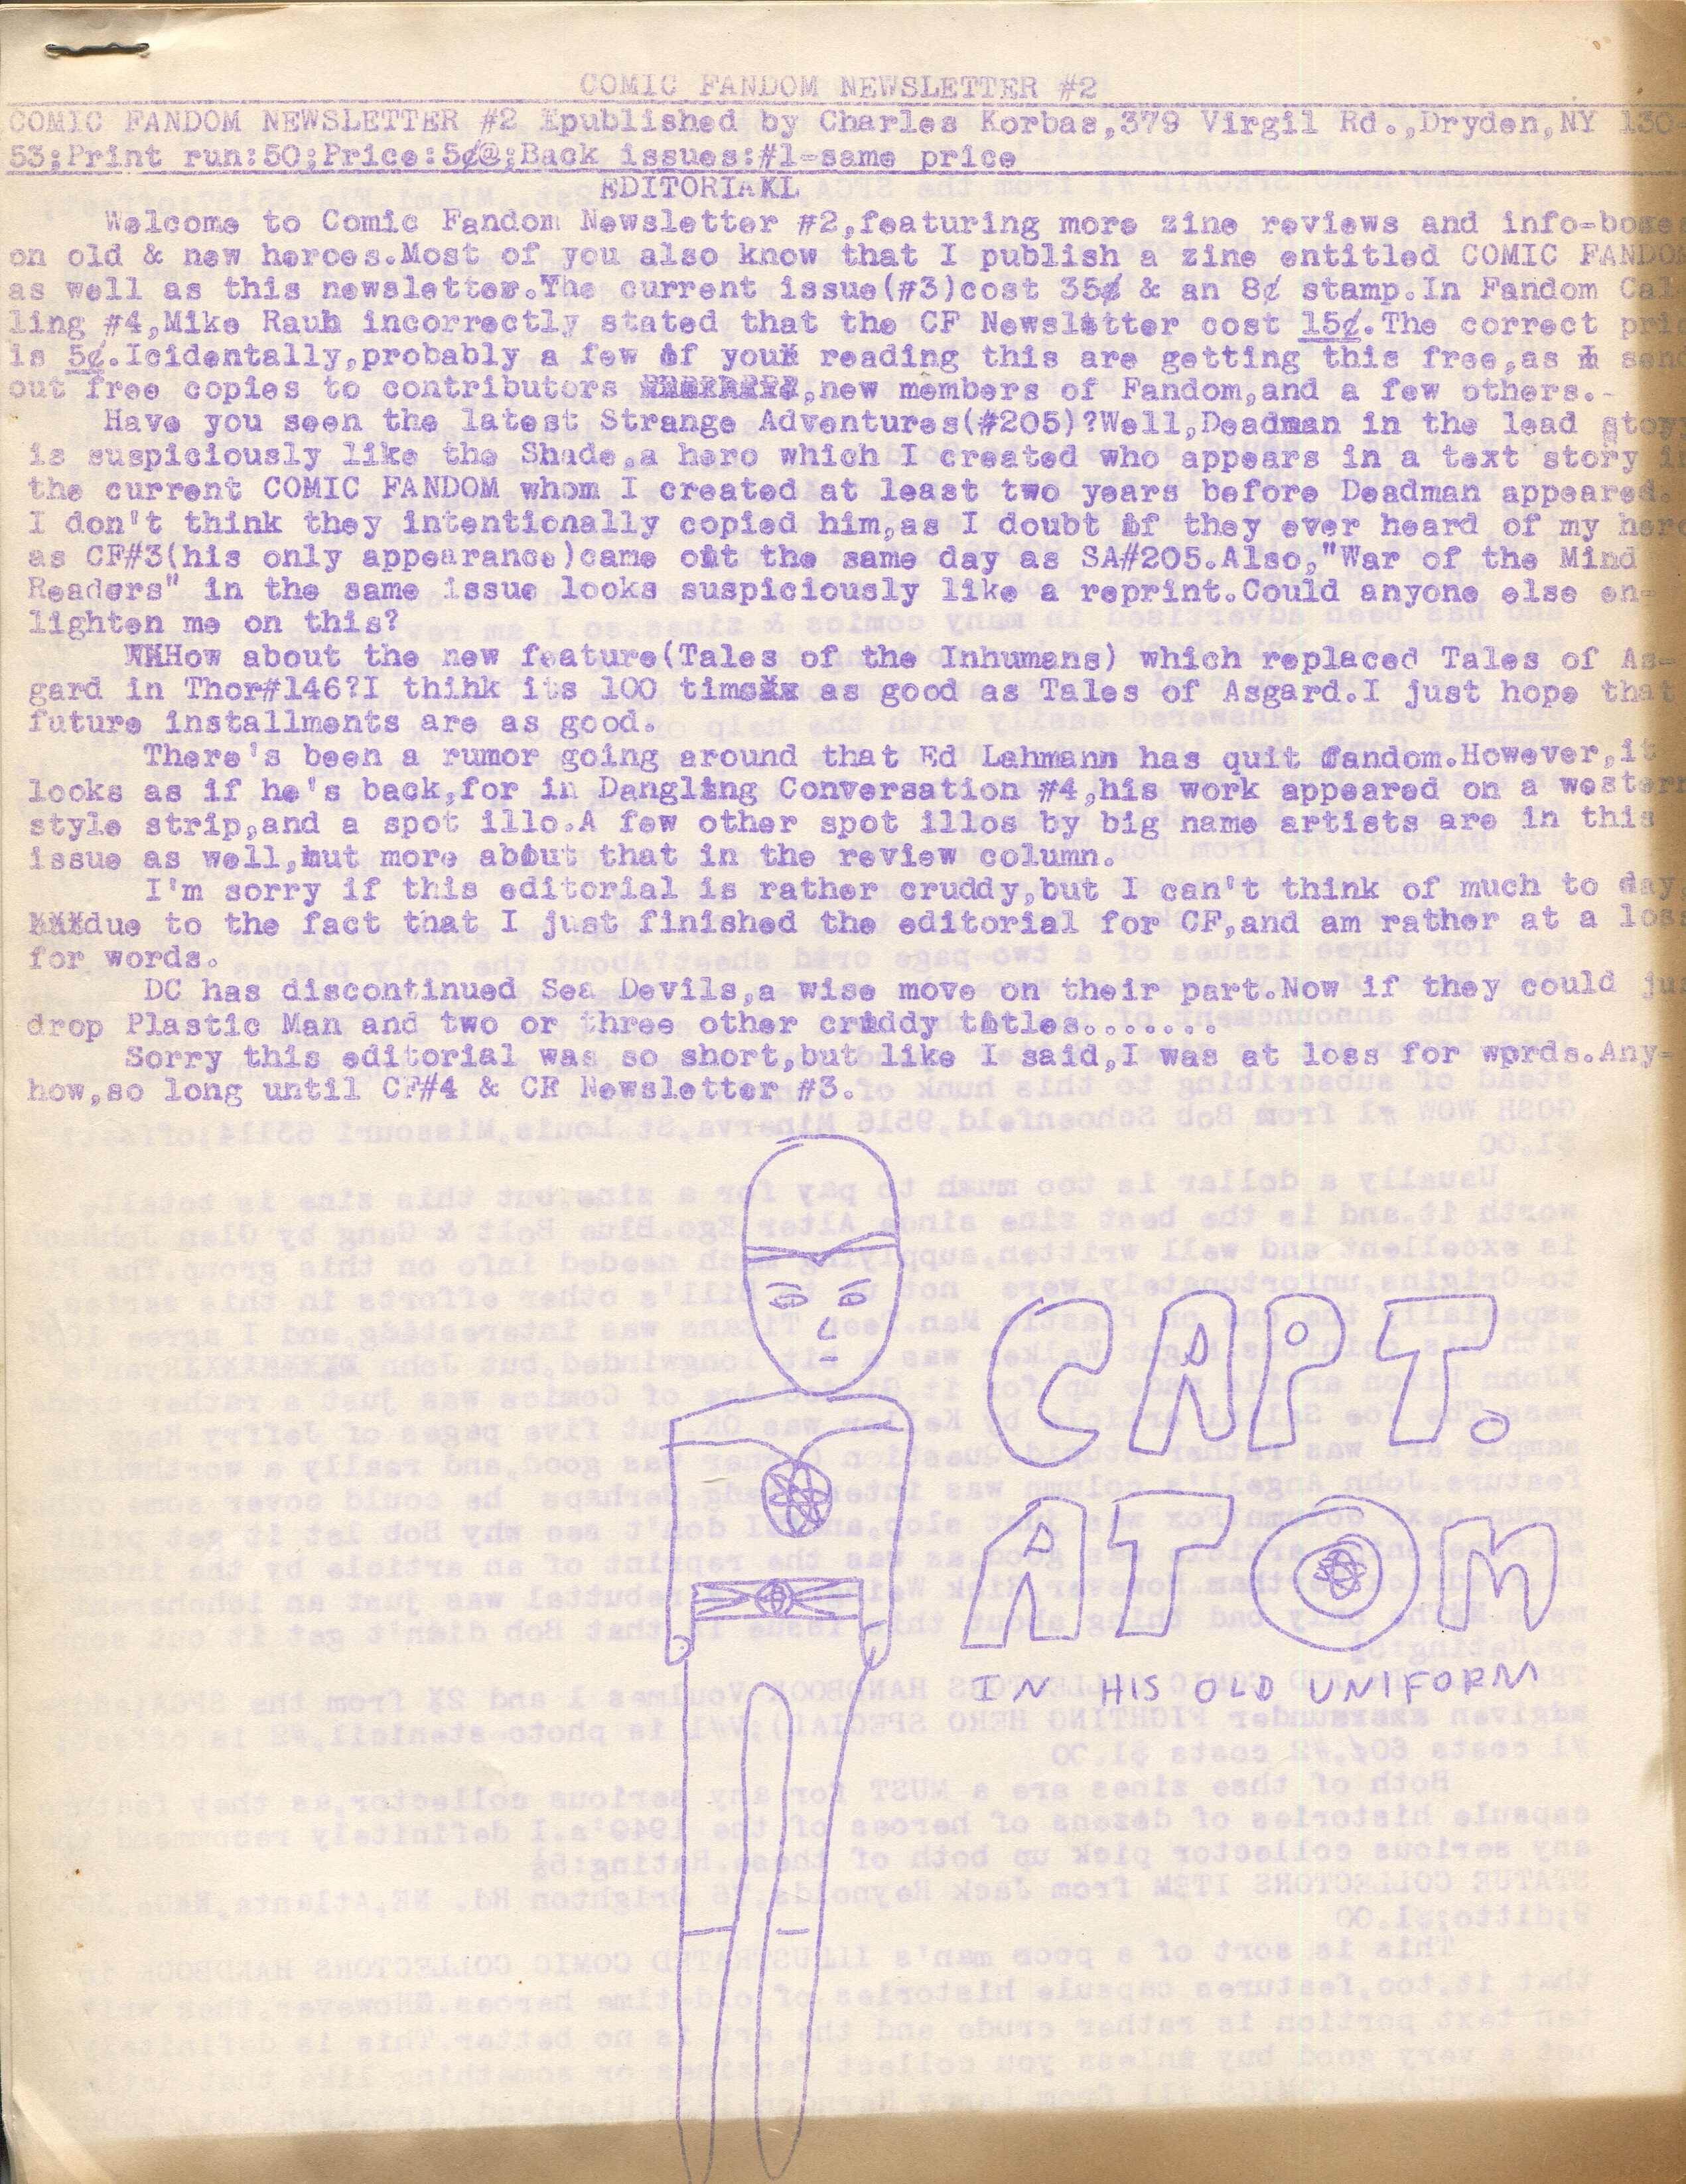 COMIC FANDOM NEWSLETTER #2
COMIC FANDOM NEWSLETTER #2 published by Charles Korbas,379 Virgil Rd.,Dryden,NY 130-
53;Print run:50;Price:5¢@;Back issues:#1=same price
EDITORIAKL
Welcome to Comic Fandom Newsletter #2,featuring more zine reviews and info-boxes
on old & new heroes.Most of you also know that I publish a zine entitled COMIC FANDOM
as well as this newsletter.The current issue(#3)cost 35¢ & an 8¢ stamp.In Fandom Cal-
ling #4,Mike Raub incorrectly stated that the CF Newsletter cost 15¢.The correct pric
is 5¢.Icidentally,probably a few of you reading this are getting this free,as I send
out free copies to contributors ,new members of Fandom,and a few others.-
Have you seen the latest Strange Adventures(#205)?Well,Deadman in the lead story
is suspiciously like the Shade,a hero which I created who appears in a text story in
the current COMIC FANDOM whom I created at least two years before Deadman appeared.
I don't think they intentionally copied him,as I doubt if they ever heard of my hero
as CF#3(his only appearance)came out the same day as SA#205.Also,"War of the Mind
Readers" in the same issue looks suspiciously like a reprint.Could anyone else en-
lighten me on this?
How about the new feature(Tales of the Inhumans) which replaced Tales of As-
gard in Thor#146?I thihk its 100 times as good as Tales of Asgard.I just hope that
future installments are as good.
There's been a rumor going around that Ed Lahmann has quit fandom.However,it
looks as if he's back,for in Dangling Conversation #4,his work appeared on a western
style strip,and a spot illo.A few other spot illos by big name artists are in this
issue as well,but more about that in the review column.
I'm sorry if this editorial is rather cruddy,but I can't think of much to day,
due to the fact that I just finished the editorial for CF,and am rather at a loss
for words.
DC has discontinued Sea Devils,a wise move on their part.Now if they could jus
drop Plastic Man and two or three other cruddy titles.......
Sorry this editorial was so short,but like I said,I was at loss for wprds.Any-
how,so long until CF#4 & CF Newsletter #3.
CAPT.
ATOM
IN HIS OLD UNIFORM